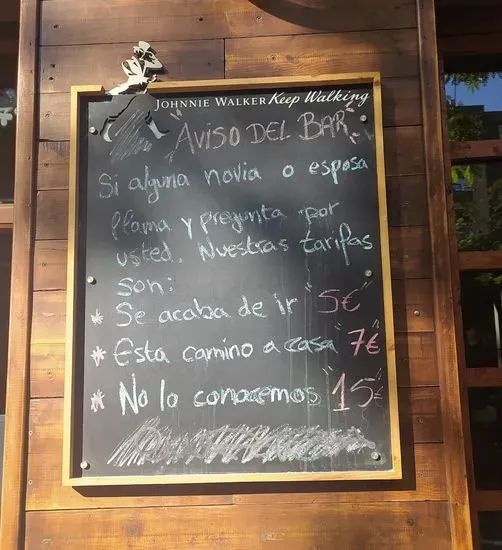 JOHNNIE WALKER Keep Walking
"AVISO DEL BAR"
Si alguna novia o esposa
llama y pregunta por
usted. Nuestras tarifas
son:
* Se acaba de ir "5€"
* Esta camino a casa "7€"
* No lo conocemos "15€"